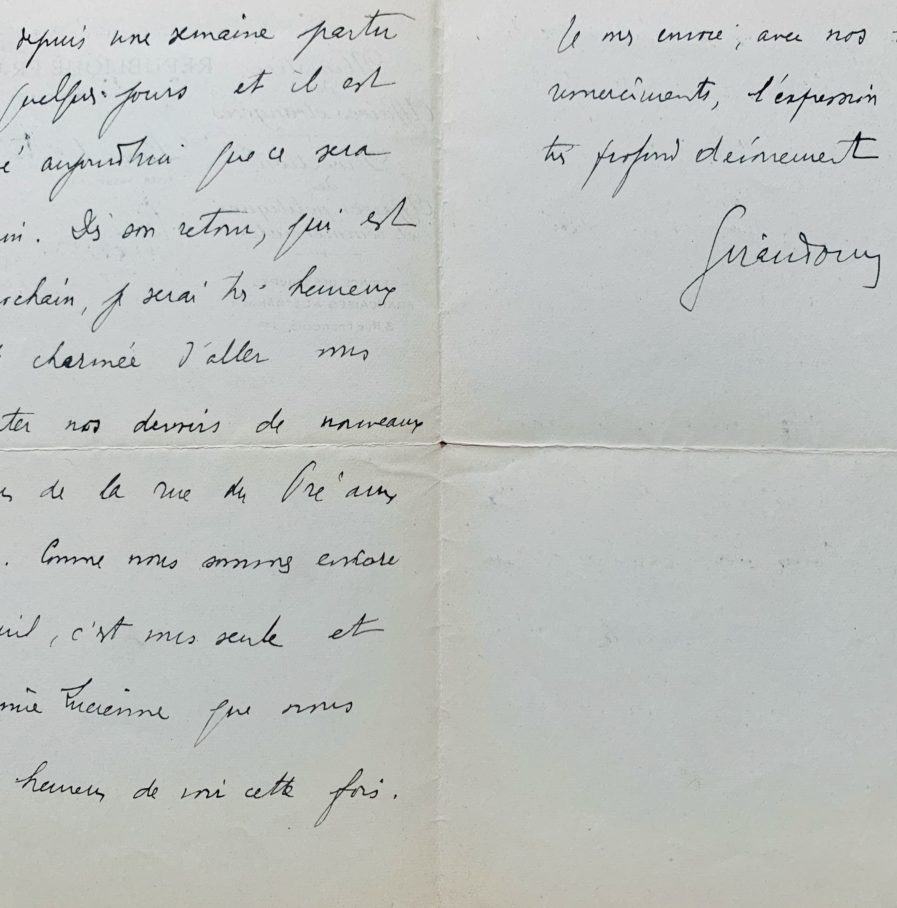 depuis une semaine partir
quelques jours et il est
é aujourd'hui que ce sera
in. Dès son retour, qui est
rochain, je serai très heureux
charmée d'aller vous
ter nos devoirs de nouveaux
de la rue du Pré aux
. Comme nous sommes encore
uil, c'est vous seule et
mie Lucienne que nous
heureux de voir cette fois.
Je vous envoie, avec nos
remerciements, l'expression
très profond dévouement
Giraudoux